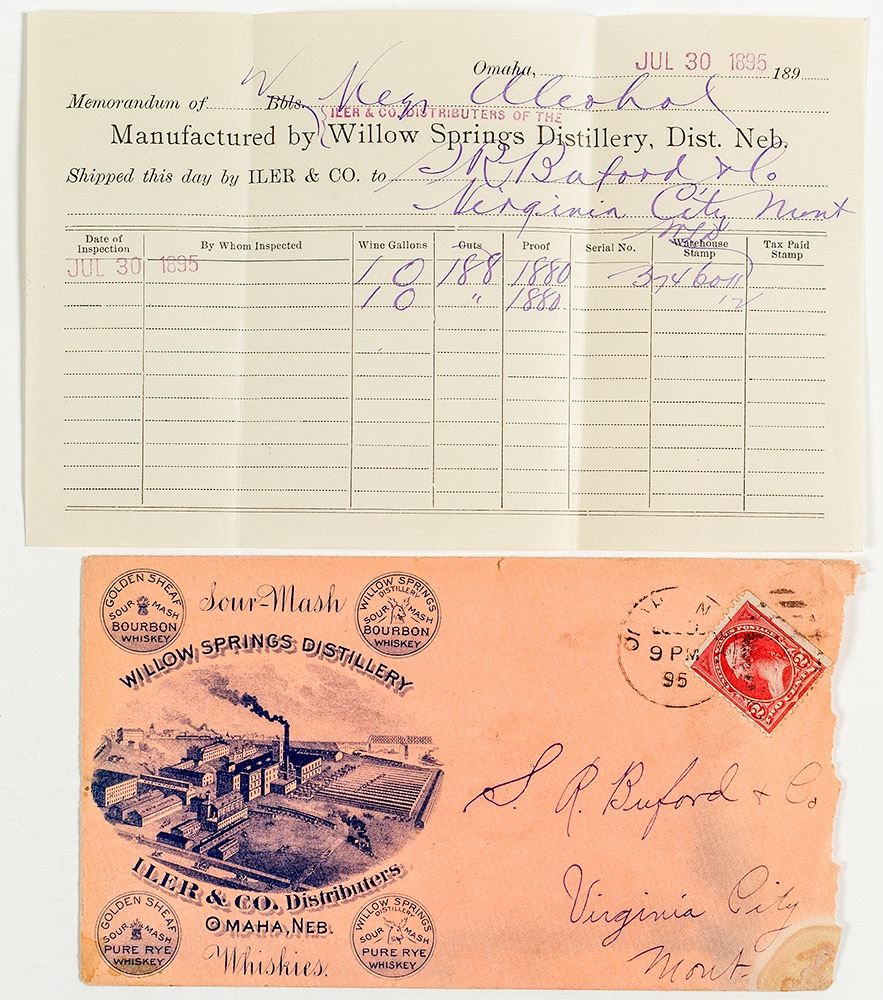 Omaha, JUL 30 1895 189
Memorandum of Bbls. Alcohol
ILER & CO. DISTRIBUTERS OF THE
Manufactured by Willow Springs Distillery, Dist. Neb.
Shipped this day by ILER & CO. to S R Buford & Co
Virginia City Mont
Date of Inspection By Whom Inspected Wine Gallons Guts Proof Serial No. Warehouse Stamp Tax Paid Stamp
JUL 30 1895 10 188 1880 3746011
10 " 1880 12
GOLDEN SHEAF
SOUR MASH
BOURBON
WHISKEY
Sour-Mash
WILLOW SPRINGS
DISTILLERY
SOUR MASH
BOURBON
WHISKEY
WILLOW SPRINGS DISTILLERY
9 PM
95
S. R. Buford & Co
Virginia City
Mont.
ILER & CO. Distributers
OMAHA, NEB.
Whiskies.
GOLDEN SHEAF
SOUR MASH
PURE RYE
WHISKEY
WILLOW SPRINGS
DISTILLERY
SOUR MASH
PURE RYE
WHISKEY